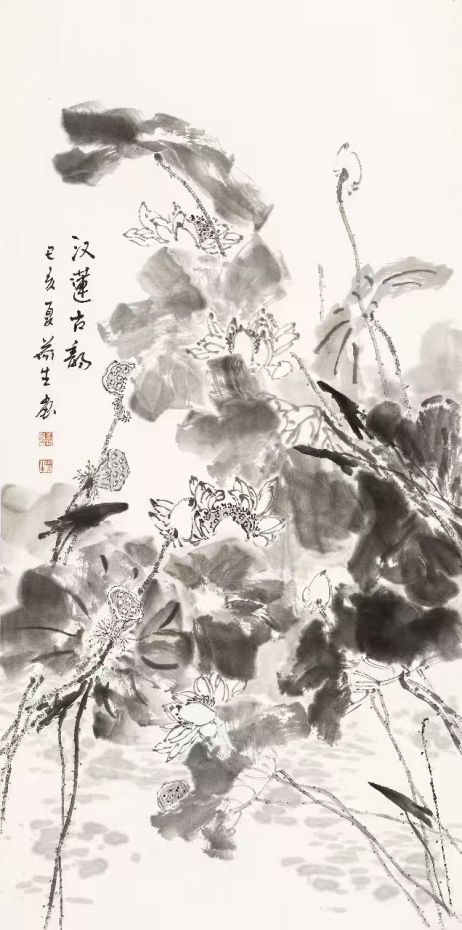 汉莲古韵
己亥夏荷生画